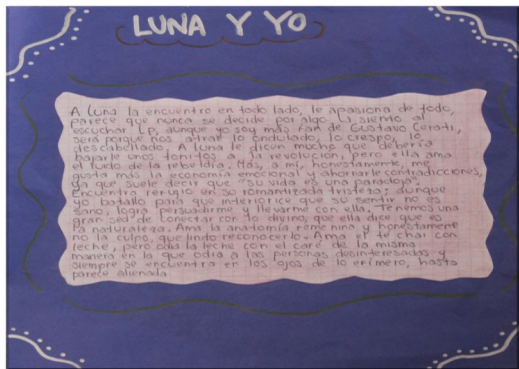 LUNA Y YO
A Luna la encuentro en todo lado, le apasiona de todo,
parece que nunca se decide por algo. La siento al
escuchar Lp, aunque yo soy más fan de Gustavo Cerati,
será porque nos atrae lo ondulado, lo crespo, lo
descabellado. A Luna le dicen mucho que debería
bajarle unos tonitos a la revolución, pero ella ama
el ruido de la rebeldía. Más, a mí, honestamente, me
gusta más la economía emocional y ahorrarle contradicciones,
ya que suele decir que "su vida es una paradoja".
Encuentra refugio en su romantizada tristeza; aunque
yo batallo para que interiorice que su sentir no es
sano, logra persuadirme y llevarme con ella. Tenemos una
gran sed de conectar con lo divino, que ella dice que es
la naturaleza. Ama la anatomía femenina y honestamente
no la culpo, que lindo reconocerlo. Ama el té chai con
leche, pero odia la leche con el café de la misma
manera en la que odia a las personas desinteresadas y
siempre se encuentra en los ojos de lo efímero, hasta
parece alienada.